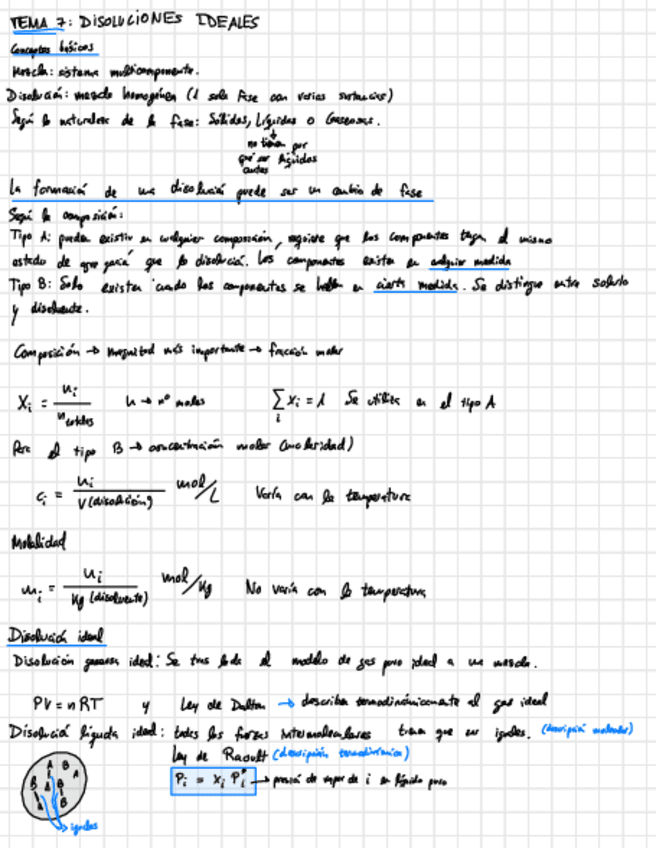 TEMA 7: DISOLUCIONES IDEALES
Conceptos básicos
Mezcla: sistema multicomponente.
Disolución: mezcla homogénea (1 sola fase con varias sustancias)
Según la naturaleza de la fase: Sólidas, Líquidas o Gaseosas.
no tienen por
qué ser líquidos
antes
La formación de una disolución puede ser un cambio de fase
Según la composición:
Tipo A: pueden existir en cualquier composición, requiere que los componentes tengan el mismo
estado de agregación que la disolución. Los componentes existen en cualquier medida
Tipo B: Solo existen cuando los componentes se hallan en cierta medida. Se distingue entre soluto
y disolvente.
Composición → magnitud más importante → fracción molar
Xi = ni / n totales   n → nº moles   ∑i xi = 1   Se utiliza en el tipo A
Para el tipo B → concentración molar (molaridad)
ci = ni / V(disolución)   mol/L   Varía con la temperatura
Molalidad
mi = ni / Kg (disolvente)   mol/Kg   No varía con la temperatura
Disolución ideal
Disolución gaseosa ideal: Se traslada el modelo de gas puro ideal a una mezcla.
PV = nRT   y   Ley de Dalton → describen termodinámicamente al gas ideal
Disolución líquida ideal: todas las fuerzas intermoleculares tienen que ser iguales. (descripción molecular)
Ley de Raoult (descripción termodinámica)
Pi = xi Pi* → presión de vapor de i en líquido puro
A B
B A B A
A B
→ iguales